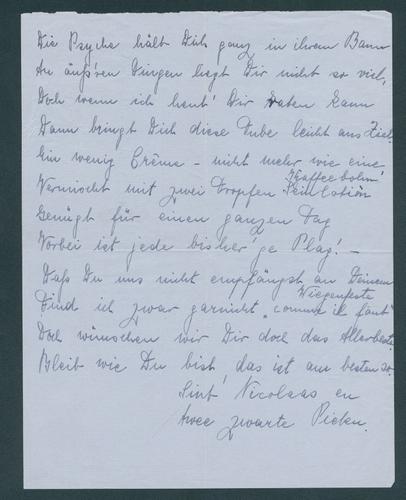 Die Psyche hält Dich ganz in ihrem Bann
An äuß'ren Dingen liegt Dir nicht so viel,
Doch wenn ich heut' Dir raten kann
Dann bringt Dich diese Tube leicht ans Ziel.
Ein wenig Crême – nicht mehr wie eine
Kaffeebohn'
Vermischt mit zwei Tropfen Lotion
Genügt für einen ganzen Tag
Vorbei ist jede bisher'ge Plag'! –
Daß Du uns nicht empfängst an Deinem
Wiegenfeste
Find ich zwar garnicht „comme il faut"
Doch wünschen wir Dir doch das Allerbeste
Bleib wie Du bist, das ist am besten so.
Sint Nicolaas en
twee zwarte Pieten.